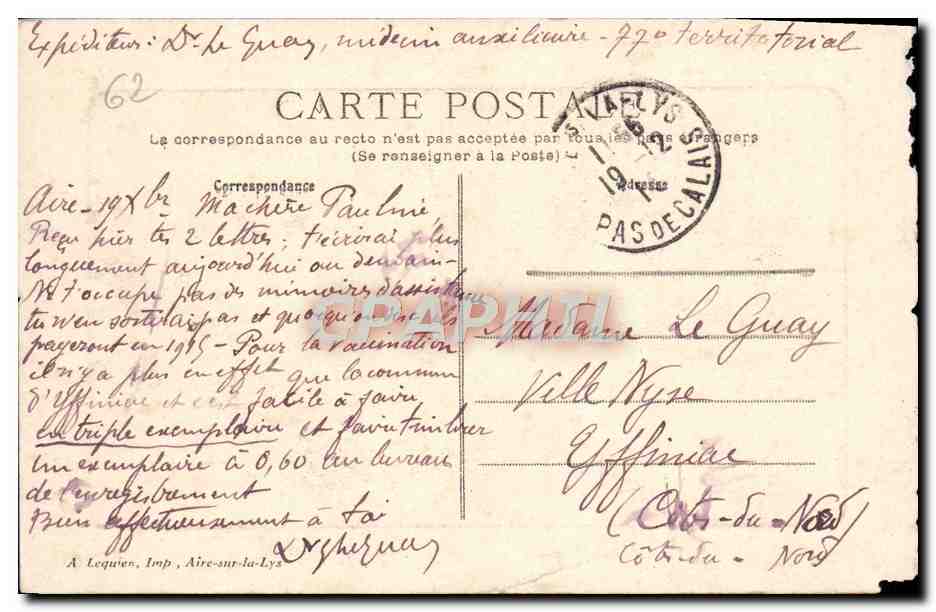 Expéditeur : Dr Le Guay, médecin auxiliaire - 77e territorial
62
CARTE POSTALE
La correspondance au recto n'est pas acceptée par tous les pays étrangers
(Se renseigner à la Poste)
AIRE-SUR-LA-LYS
19
PAS DE CALAIS
Correspondance
Adresse
Aire - 19 Xbr Ma chère Pauline,
Reçu hier tes 2 lettres ; t'écrirai plus
longuement aujourd'hui ou demain -
Ne t'occupe pas des mémoires d'assistance
tu n'en sortirais pas et quoiqu'on dise ils
payeront en 1915 - Pour la vaccination
il n'y a plus en effet que la commune
d'Yffiniac et c'est facile à faire
en triple exemplaire et faire timbrer
un exemplaire à 0,60 au bureau
de l'enregistrement
Bien affectueusement à toi
Dr Le Guay
CPAPHIL
Madame Le Guay
Ville Nyse
Yffiniac
(Côtes-du-Nord)
Côtes-du-Nord
A Lequien, Imp, Aire-sur-la-Lys